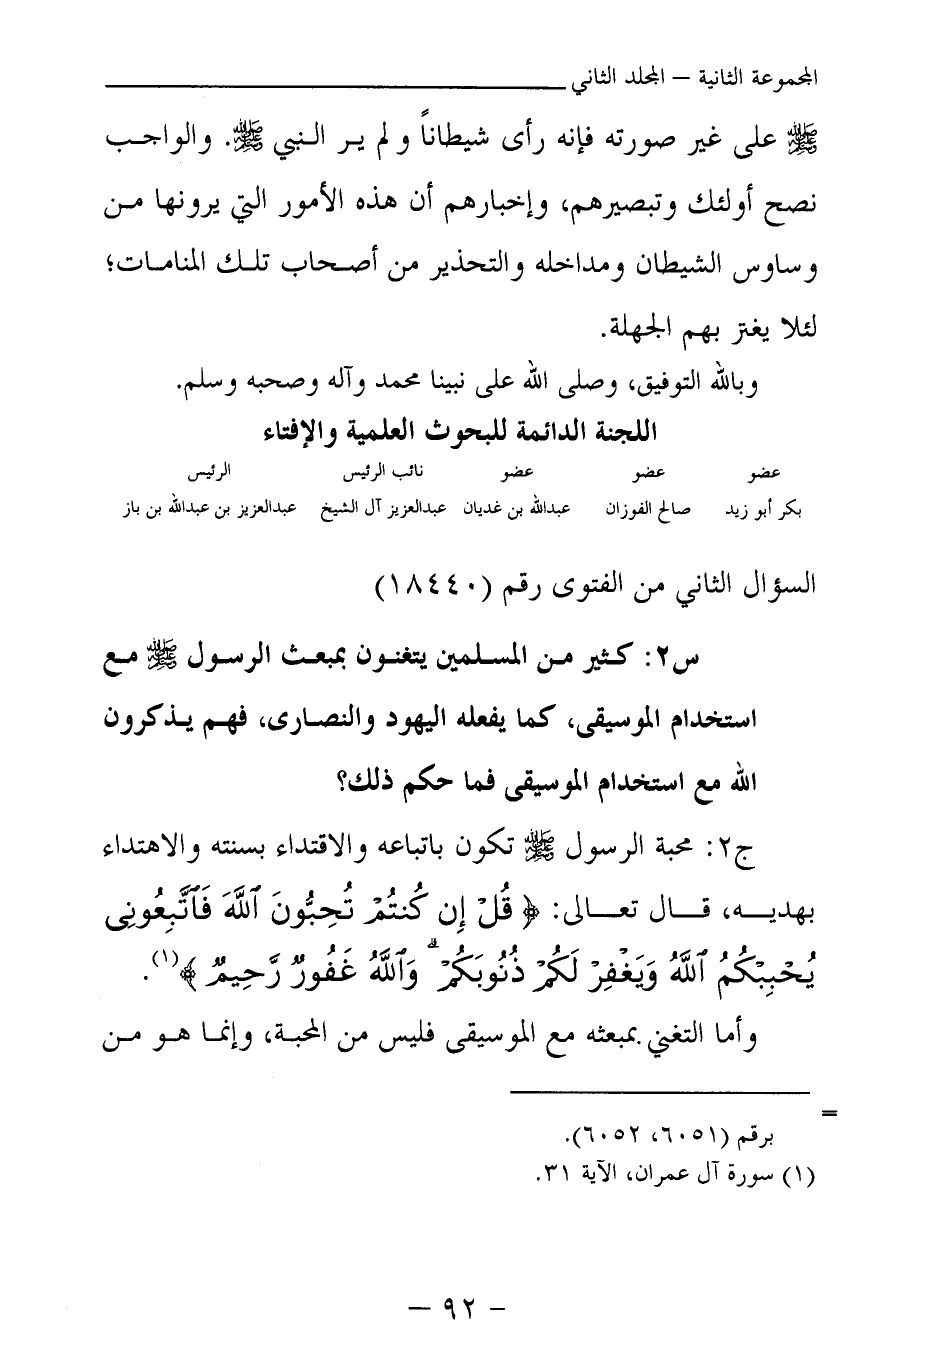 المجموعة الثانية – المجلد الثاني
ﷺ على غير صورته فإنه رأى شيطاناً ولم يـر الـنبي ﷺ. والواجـب
نصح أولئك وتبصيرهم، وإخبارهم أن هذه الأمور التي يرونها مـن
وساوس الشيطان ومداخله والتحذير من أصـحاب تلـك المنامـات؛
لئلا يغتر بهم الجهلة.
وبالله التوفيق، وصلى الله على نبينا محمد وآله وصحبه وسلم.
اللجنة الدائمة للبحوث العلمية والإفتاء
عضو عضو عضو نائب الرئيس الرئيس
بكر أبو زيد صالح الفوزان عبدالله بن غديان عبدالعزيز آل الشيخ عبدالعزيز بن عبدالله بن باز
السؤال الثاني من الفتوى رقم (١٨٤٤٠)
س٢: كـثير مـن المسـلمين يتغنـون بمبعـث الرسـول ﷺ مـع
استخدام الموسيقى، كما يفعله اليهود والنصـارى، فهـم يـذكرون
الله مع استخدام الموسيقى فما حكم ذلك؟
ج٢: محبة الرسول ﷺ تكون باتباعه والاقتداء بسنته والاهتداء
بهديــه، قــال تعــالى: ﴿ قُلْ إِن كُنتُمْ تُحِبُّونَ ٱللَّهَ فَٱتَّبِعُونِى
يُحْبِبْكُمُ ٱللَّهُ وَيَغْفِرْ لَكُمْ ذُنُوبَكُمْ ۗ وَٱللَّهُ غَفُورٌ رَّحِيمٌ ﴾(١).
وأما التغني بمبعثه مع الموسيقى فليس من المحبة، وإنمـا هـو مـن
=
برقم (٦٠٥١، ٦٠٥٢).
(١) سورة آل عمران، الآية ٣١.
– ٩٢ –